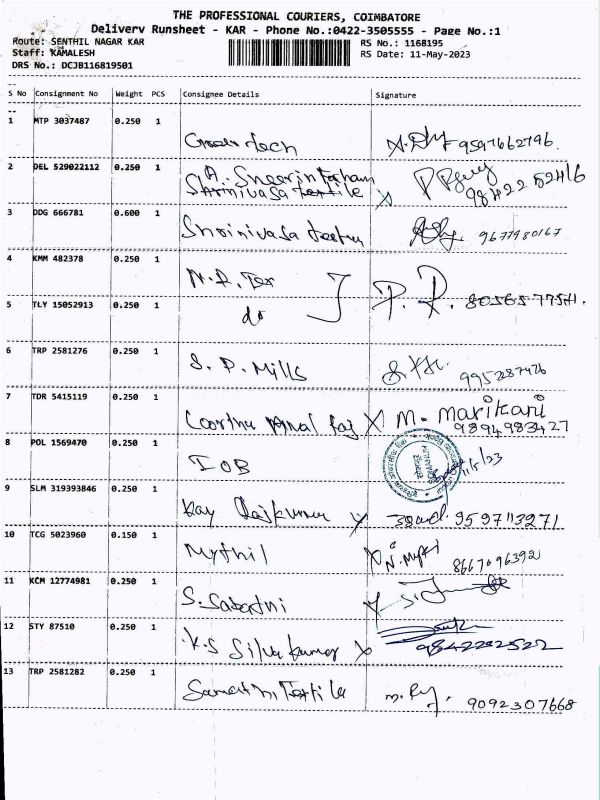 THE PROFESSIONAL COURIERS, COIMBATORE
Delivery Runsheet - KAR - Phone No.:0422-3505555 - Page No.:1
Route: SENTHIL NAGAR KAR
Staff: KAMALESH
DRS No.: DCJB116819501
RS No.: 1168195
RS Date: 11-May-2023
S No Consignment No Weight PCS Consignee Details Signature
1 MTP 3037487 0.250 1
tech 9597662796.
2 DEL 529022112 0.250 1
3 DDG 666781 0.600 1
Shrinivasa 9677980167
4 KMM 482378 0.250 1
N.P. Tex P. P.
5 TLY 15052913 0.250 1
do 8056577541.
6 TRP 2581276 0.250 1
S. P. Mills 995287426
7 TDR 5415119 0.250 1
M. Marikani
9894983427
8 POL 1569470 0.250 1
IOB 11/5/23
9 SLM 319393846 0.250 1
Kay Rajkumar 9597113271
10 TCG 5023960 0.150 1
Mythil 8667096392
11 KCM 12774981 0.250 1
S.
12 STY 87510 0.250 1
K.S Silvakumar 9842292522
13 TRP 2581282 0.250 1
9092307668